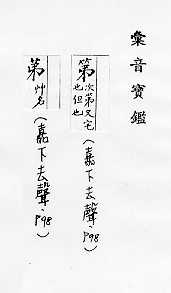 彙音寶鑑
第 次第又宅也但也
(嘉下去聲、P98)
苐 艸名
(嘉下去聲、P98)